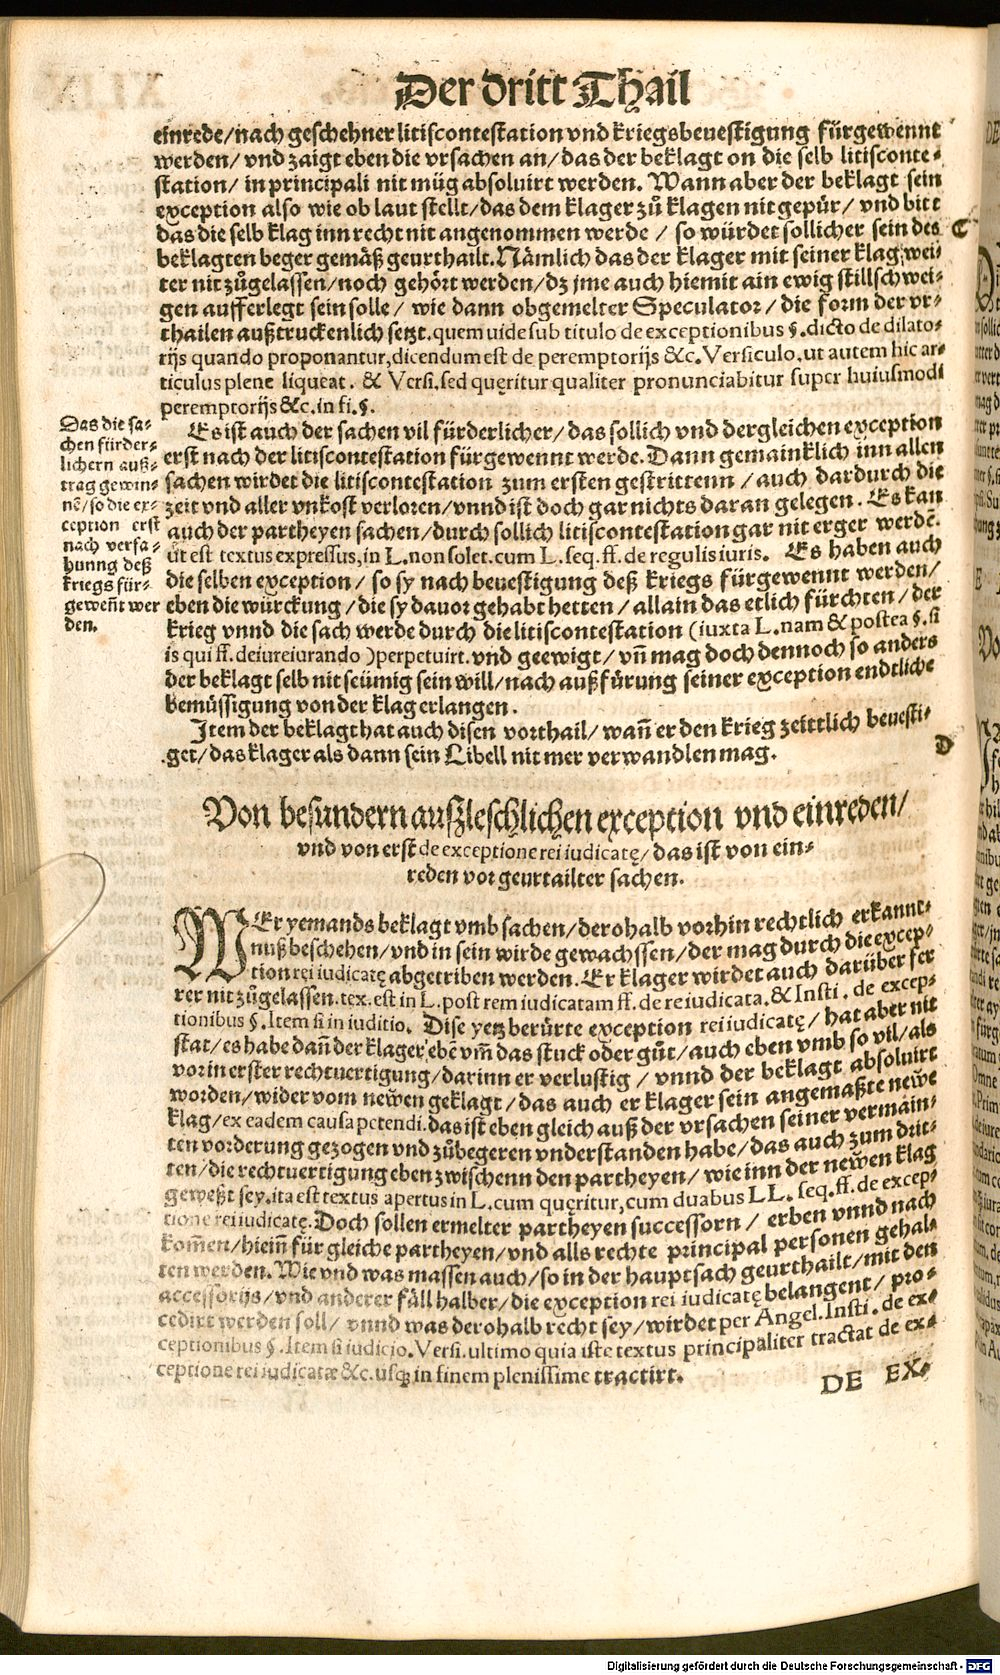 Der dritt Thail
einrede/nach geschehner litiscontestation vnd kriegsbeuestigung fürgewennt
werden/ vnd zaigt eben die vrsachen an/das der beklagt on die selb litisconte-
station/ in principali nit müg absoluirt werden. Wann aber der beklagt sein
exception also wie ob laut stellt/das dem klager zů klagen nit gepür/ vnd bitt
das die selb klag inn recht nit angenommen werde / so würdet sollicher sein des
C
beklagten beger gemäß geurthailt. Nämlich das der klager mit seiner klag, wei-
ter nit zůgelassen/noch gehört werden/dz jme auch hiemit ain ewig stillschwei-
gen aufferlegt sein solle / wie dann obgemelter Speculator/ die form der vr-
thailen außtruckenlich setzt. quem uide sub titulo de exceptionibus §. dicto de dilato-
rijs quando proponantur, dicendum est de peremptorijs &c. Versiculo. ut autem hic ar-
ticulus plene liqueat. & Versi. sed quęritur qualiter pronunciabitur super huiusmodi
peremptorijs &c. in fi. §.
Das die sa-
chen fürder-
lichern auß-
trag gewin-
nē/so die ex-
ception erst
nach verfa-
hunng deß
kriegs für-
geweñt wer
den.
Es ist auch der sachen vil fürderlicher/das sollich vnd dergleichen exception
erst nach der litiscontestation fürgewennt werde. Dann gemainklich inn allen
sachen wirdet die litiscontestation zum ersten gestrittenn / auch dardurch die
zeit vnd aller vnkost verloren/vnnd ist doch gar nichts daran gelegen. Es kan
auch der partheyen sachen/durch sollich litiscontestation gar nit erger werdē.
ut est textus expressus, in L. non solet. cum L. seq. ff. de regulis iuris. Es haben auch
die selben exception / so sy nach beuestigung deß kriegs fürgewennt werden/
eben die würckung / die sy dauor gehabt hetten / allain das etlich fürchten / der
krieg vnnd die sach werde durch die litiscontestation (iuxta L. nam & postea §. si
is qui ff. de iureiurando ) perpetuirt. vnd geewigt / vñ mag doch dennoch so anders
der beklagt selb nit seümig sein will/nach außfürung seiner exception endtliche
bemüssigung von der klag erlangen.
Item der beklagt hat auch disen vorthail/ wañ er den krieg zeittlich beuesti-
D
get/das klager als dann sein Libell nit mer verwandlen mag.
Von besundern außleschlichen exception vnd einreden/
vnd von erst de exceptione rei iudicatę/ das ist von ein-
reden vor geurtailter sachen.
WEr yemands beklagt vmb sachen/derohalb vorhin rechtlich erkannt-
nuß beschehen/vnd in sein wirde gewachssen/der mag durch die excep-
tion rei iudicatę abgetriben werden. Er klager wirdet auch darüber fer
rer nit zůgelassen. tex. est in L. post rem iudicatam ff. de re iudicata. & Insti. de excep-
tionibus §. Item si in iuditio. Dise yetz berürte exception rei iudicatę/ hat aber nit
stat/es habe dañ der klager ebē vm̄ das stuck oder gůt/auch eben vmb so vil/als
vor in erster rechtuertigung/darinn er verlustig / vnnd der beklagt absoluirt
worden/wider vom newen geklagt/das auch er klager sein angemaßte newe
klag/ex eadem causa petendi. das ist eben gleich auß der vrsachen seiner vermain-
ten vorderung gezogen vnd zůbegeren vnderstanden habe/das auch zum drit-
ten/die rechtuertigung eben zwischenn den partheyen/ wie inn der newen klag
geweßt sey. ita est textus apertus in L. cum quęritur, cum duabus LL. seq. ff. de excep-
tione rei iudicatę. Doch sollen ermelter partheyen successorn / erben vnnd nach
kom̄en/hieiñ für gleiche partheyen/vnd alls rechte principal personen gehal-
ten werden. Wie vnd was massen auch/so in der hauptsach geurthailt/mit den
accessorijs/vnd anderer fäll halber/die exception rei iudicatę belangent/ pro-
cedirt werden soll/ vnnd was derohalb recht sey/wirdet per Angel. Insti. de ex-
ceptionibus §. Item si iudicio. Versi. ultimo quia iste textus principaliter tractat de ex-
ceptione rei iudicatæ &c. usq; in finem plenissime tractirt.
DE EX-
Digitalisierung gefördert durch die Deutsche Forschungsgemeinschaft - DFG